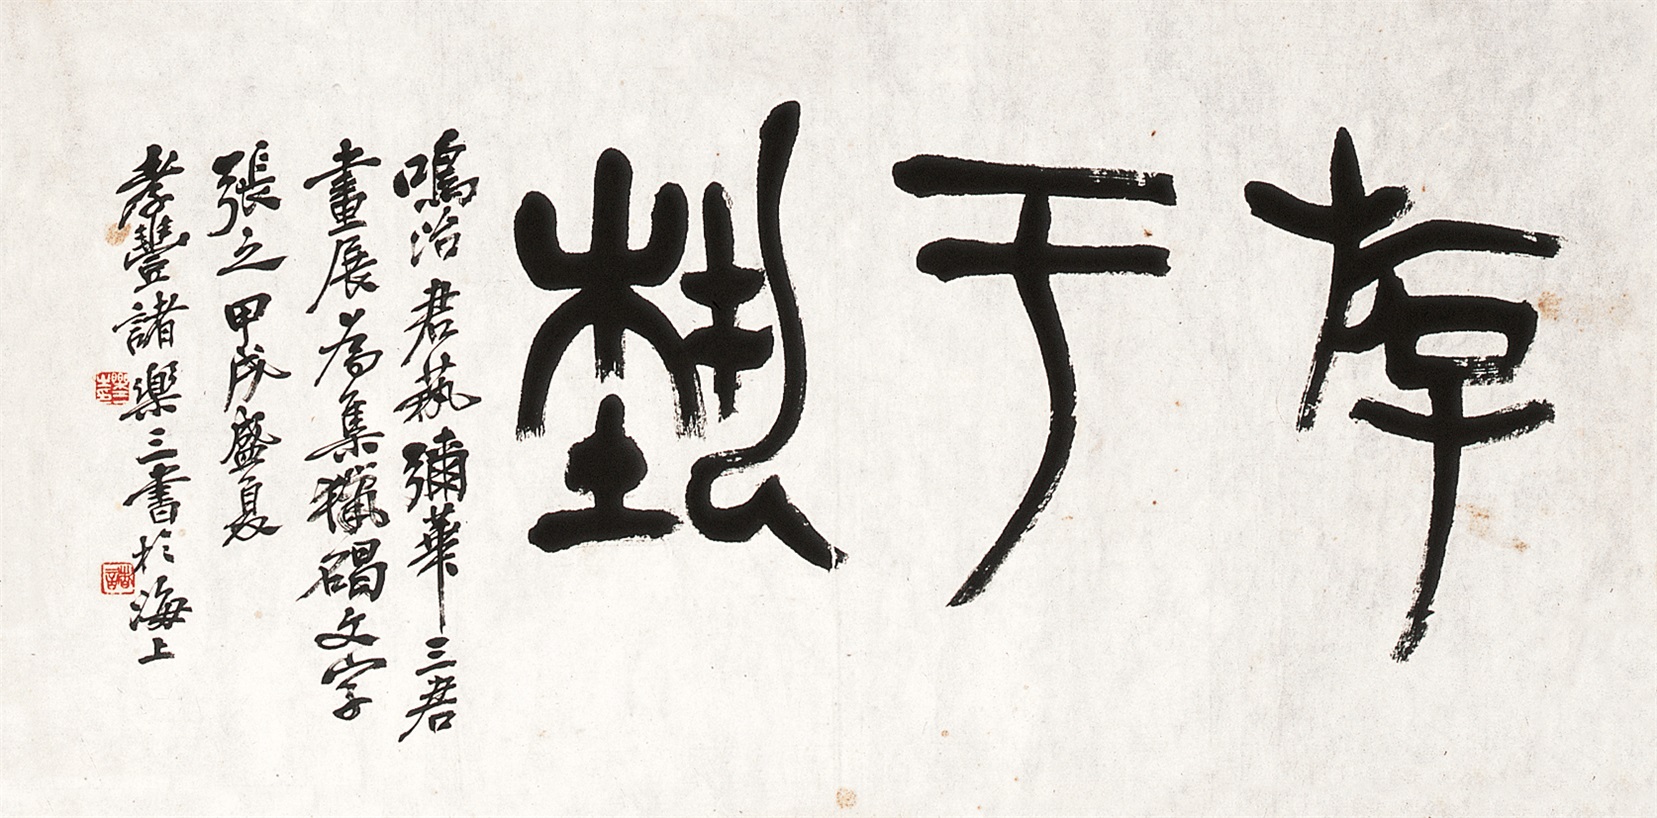 斿于埶
鳴治君蓺彌華三君
畫展為集獵碣文字
張之甲戌盛夏
孝豐諸樂三書於海上